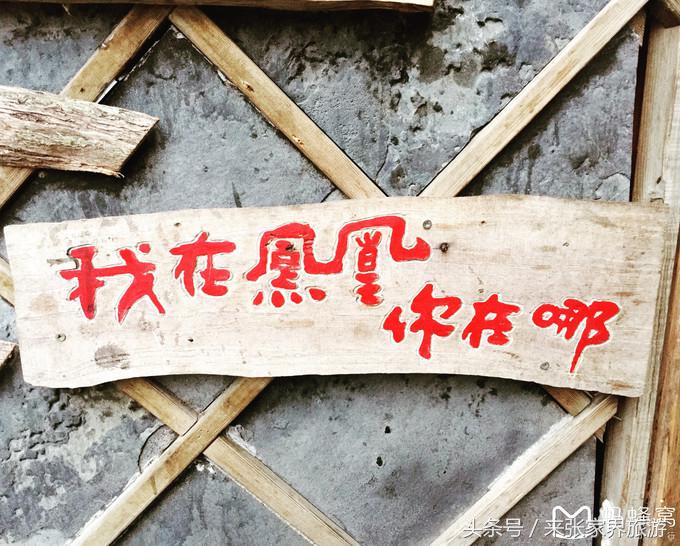 我在鳳凰
你在哪
蚂蜂窝
头条号 / 来张家界旅游